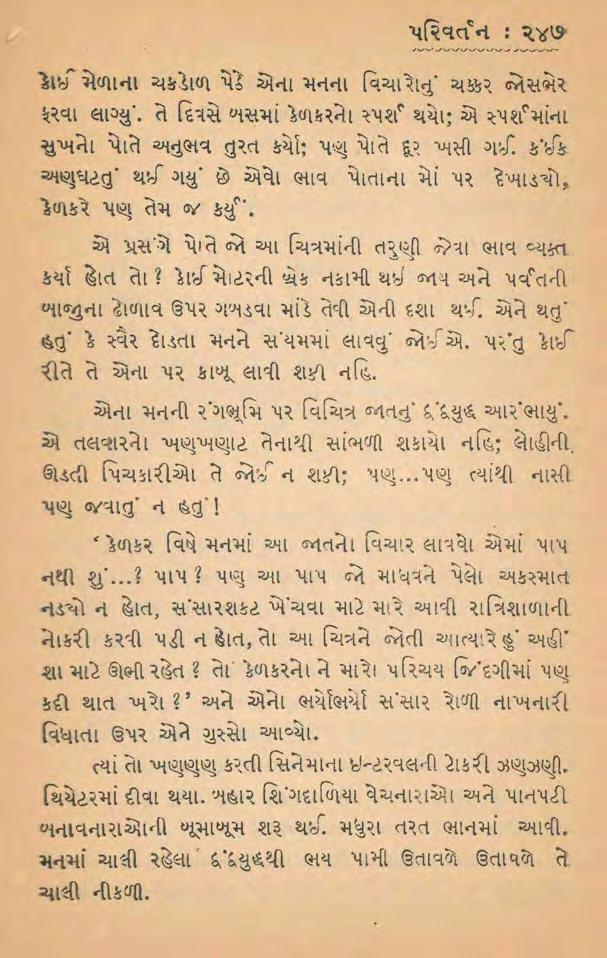 પરિવર્તન : ૨૪૭
કોઈ મેળાના ચકડોળ પેઠે એના મનના વિચારોનું ચક્કર જોસભેર
ફરવા લાગ્યું. તે દિવસે બસમાં કેળકરનો સ્પર્શ થયો; એ સ્પર્શમાંના
સુખનો પોતે અનુભવ તુરત કર્યો; પણ પોતે દૂર ખસી ગઈ. કંઈક
અણઘટતું થઈ ગયું છે એવો ભાવ પોતાના મોં પર દેખાડ્યો,
કેળકરે પણ તેમ જ કર્યું.
એ પ્રસંગે પોતે જો આ ચિત્રમાંની તરુણી જેવા ભાવ વ્યક્ત
કર્યા હોત તો ? કોઈ મોટરની બ્રેક નકામી થઈ જાય અને પર્વતની
બાજુના ઢોળાવ ઉપર ગબડવા માંડે તેવી એની દશા થઈ. એને થતું
હતું કે સ્વૈર દોડતા મનને સંયમમાં લાવવું જોઈએ. પરંતુ કોઈ
રીતે તે એના પર કાબૂ લાવી શકી નહિ.
એના મનની રંગભૂમિ પર વિચિત્ર જાતનું દ્વંદ્વયુદ્ધ આરંભાયું.
એ તલવારનો ખણખણાટ તેનાથી સાંભળી શકાયો નહિ; લોહીની
ઊડતી પિચકારીઓ તે જોઈ ન શકી; પણ...પણ ત્યાંથી નાસી
પણ જવાતું ન હતું !
‘ કેળકર વિષે મનમાં આ જાતનો વિચાર લાવવો એમાં પાપ
નથી શું...? પાપ ? પણ આ પાપ જો માધવને પેલો અકસ્માત
નડ્યો ન હોત, સંસારશકટ ખેંચવા માટે મારે આવી રાત્રિશાળાની
નોકરી કરવી પડી ન હોત, તો આ ચિત્રને જોતી અત્યારે હું અહીં
શા માટે ઊભી રહેત ? તો કેળકરનો ને મારો પરિચય જિંદગીમાં પણ
કદી થાત ખરો ?’ અને એનો ભર્યોભર્યો સંસાર રોળી નાખનારી
વિધાતા ઉપર એને ગુસ્સો આવ્યો.
ત્યાં તો ખણણણ કરતી સિનેમાના ઇન્ટરવલની ટોકરી ઝણઝણી.
થિયેટરમાં દીવા થયા. બહાર શિંગદાળિયા વેચનારાઓ અને પાનપટી
બનાવનારાઓની બૂમાબૂમ શરૂ થઈ. મધુરા તરત ભાનમાં આવી.
મનમાં ચાલી રહેલા દ્વંદ્વયુદ્ધથી ભય પામી ઉતાવળે ઉતાવળે તે
ચાલી નીકળી.